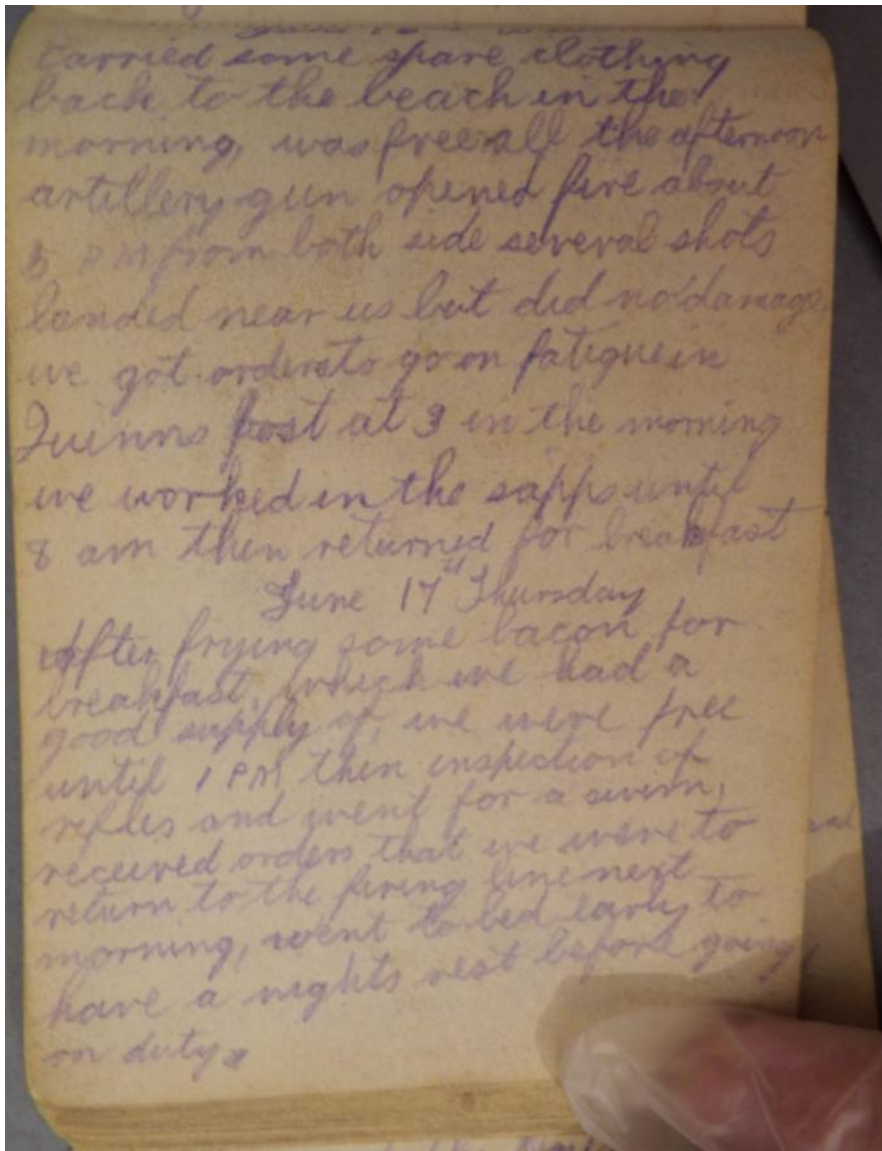 Carried some spare clothing
back to the beach in the
morning, was free all the afternoon
artillery gun opened fire about
5 PM from both side several shots
landed near us but did no damage
we got orders to go on fatigue in
Quinns post at 3 in the morning
we worked in the sapps until
8 am then returned for breakfast
June 17 Thursday
After frying some bacon for
breakfast, which we had a
good supply of, we were free
until 1 PM then inspection of
rifles and went for a swim,
received orders that we were to
return to the firing line next
morning, went to bed early to
have a nights rest before going
on duty.